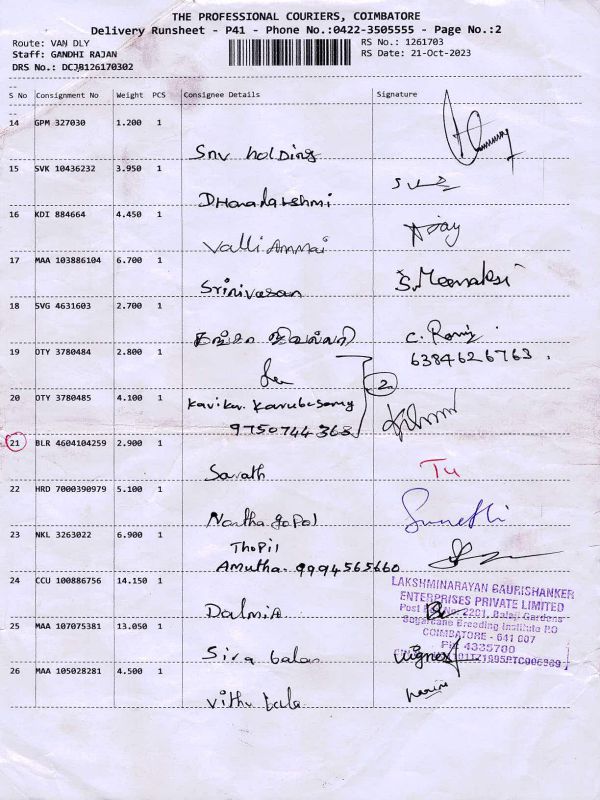 THE PROFESSIONAL COURIERS, COIMBATORE
Delivery Runsheet - P41 - Phone No.:0422-3505555 - Page No.:2
Route: VAN DLY RS No.: 1261703
Staff: GANDHI RAJAN RS Date: 21-Oct-2023
DRS No.: DCJB126170302
S No Consignment No Weight PCS Consignee Details Signature
14 GPM 327030 1.200 1
Snv holding
15 SVK 10436232 3.950 1
Dhanalakshmi
16 KDI 884664 4.450 1
Valli Ammai Ajay
17 MAA 103886104 6.700 1
Srinivasan S. Meenaksi
18 SVG 4631603 2.700 1
C. Ramj
19 OTY 3780484 2.800 1 6384626763.
20 OTY 3780485 4.100 1 2
Kavikar. Karubasamy
9750744363
21 BLR 4604104259 2.900 1
Sarath
22 HRD 7000390979 5.100 1
Nantha gopal
23 NKL 3263022 6.900 1
Thopil
Amutha. 9994565660
24 CCU 100886756 14.150 1
LAKSHMINARAYAN GAURISHANKER
ENTERPRISES PRIVATE LIMITED
Dalmia Post Balaji Gardens
Sugarcane Breeding Institute P.O
25 MAA 107075381 13.050 1 COIMBATORE - 641 007
Siva balan Vignesh
26 MAA 105028281 4.500 1
Vithu bala